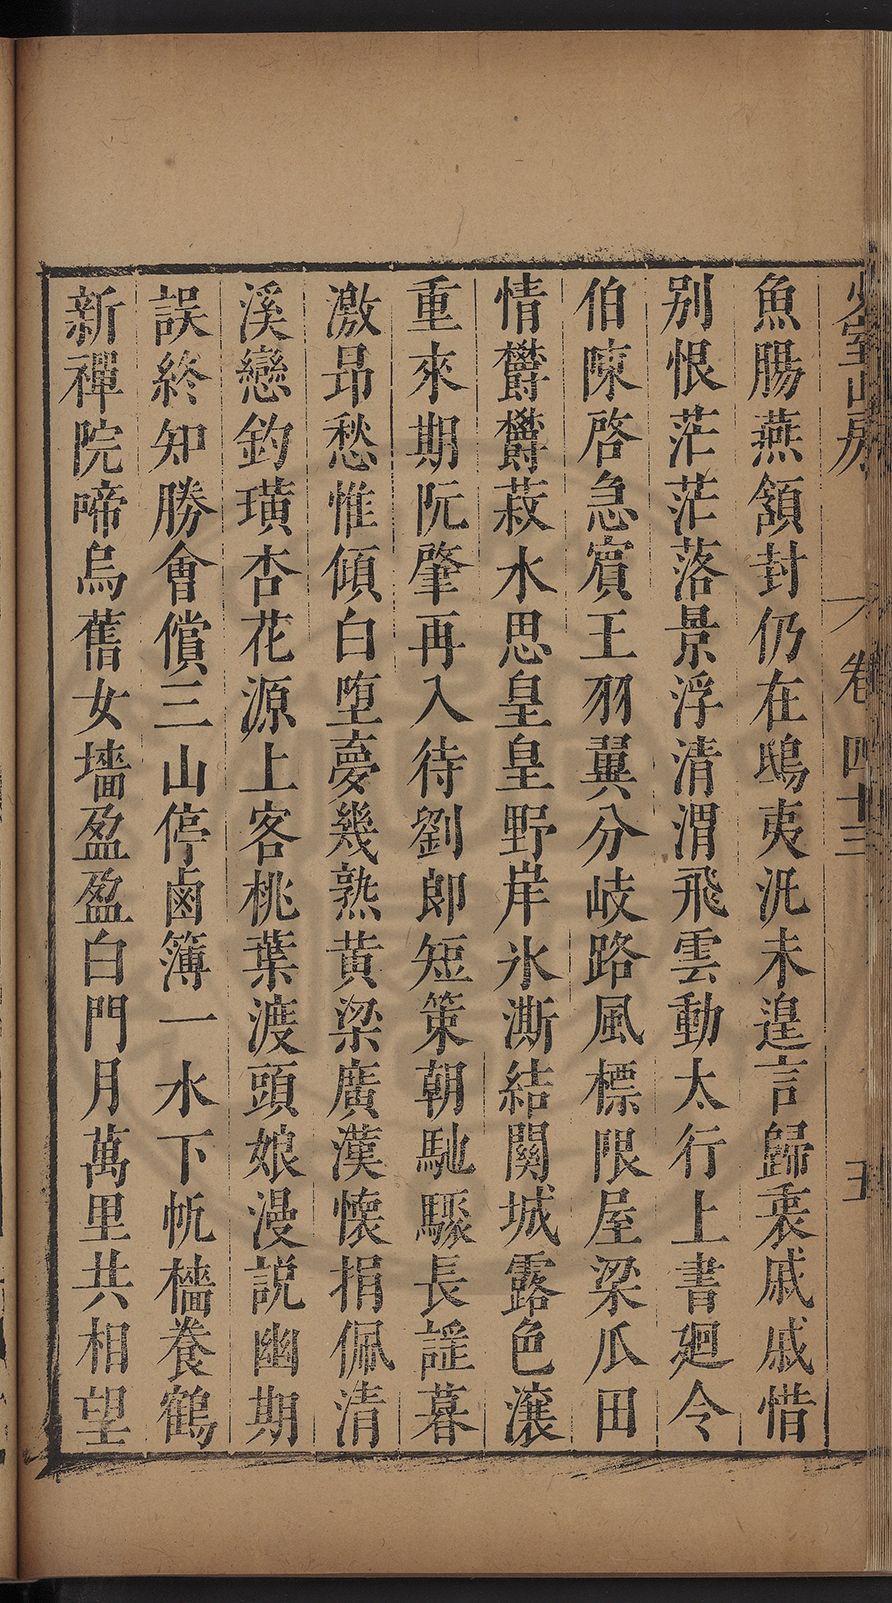 少室山房
卷四十三
五
魚腸燕頷封仍在鴟夷汎未遑言歸裘戚戚惜
別恨茫茫落景浮清渭飛雲動太行上書廻令
伯陳啓急賓王羽翼分岐路風標限屋梁瓜田
情欝欝菽水思皇皇野岸氷澌結關城露色瀼
重來期阮肇再入待劉郎短策朝馳驟長謡暮
激昻愁惟傾白墮夢幾熟黃梁廣漢懐捐佩清
溪戀釣璜杏花源上客桃葉渡頭娘漫説幽期
誤終知勝會償三山停鹵簿一水下帆檣養鶴
新禪院啼烏舊女墻盈盈白門月萬里共相望